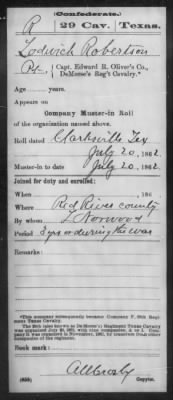 (Confederate.)
R 29 Cav. Texas.
Lodwich Robertson
Pt., Capt. Edward R. Oliver's Co., DeMorse's Reg't Cavalry.*
Age years.
Appears on
Company Muster-in Roll
of the organization named above.
Roll dated Clarksville Tex
July 20, 1862.
Muster-in to date July 20, 1862.
Joined for duty and enrolled:
When , 186 .
Where Red River county
By whom Norwood
Period 3 yrs or during the war
Remarks:
*This company subsequently became Company F, 29th Regiment Texas Cavalry.
Book mark:
(635) Copyist.